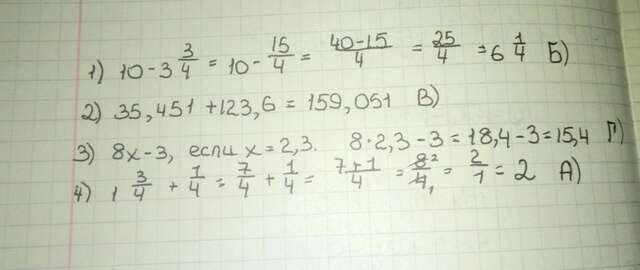 1) 10 - 3 3/4 = 10 - 15/4 = 40-15/4 = 25/4 = 6 1/4 Б)
2) 35,451 + 123,6 = 159,051 В)
3) 8х-3, если х = 2,3. 8·2,3 - 3 = 18,4 - 3 = 15,4 Г)
4) 1 3/4 + 1/4 = 7/4 + 1/4 = 7+1/4 = 8²/4₁ = 2/1 = 2 А)